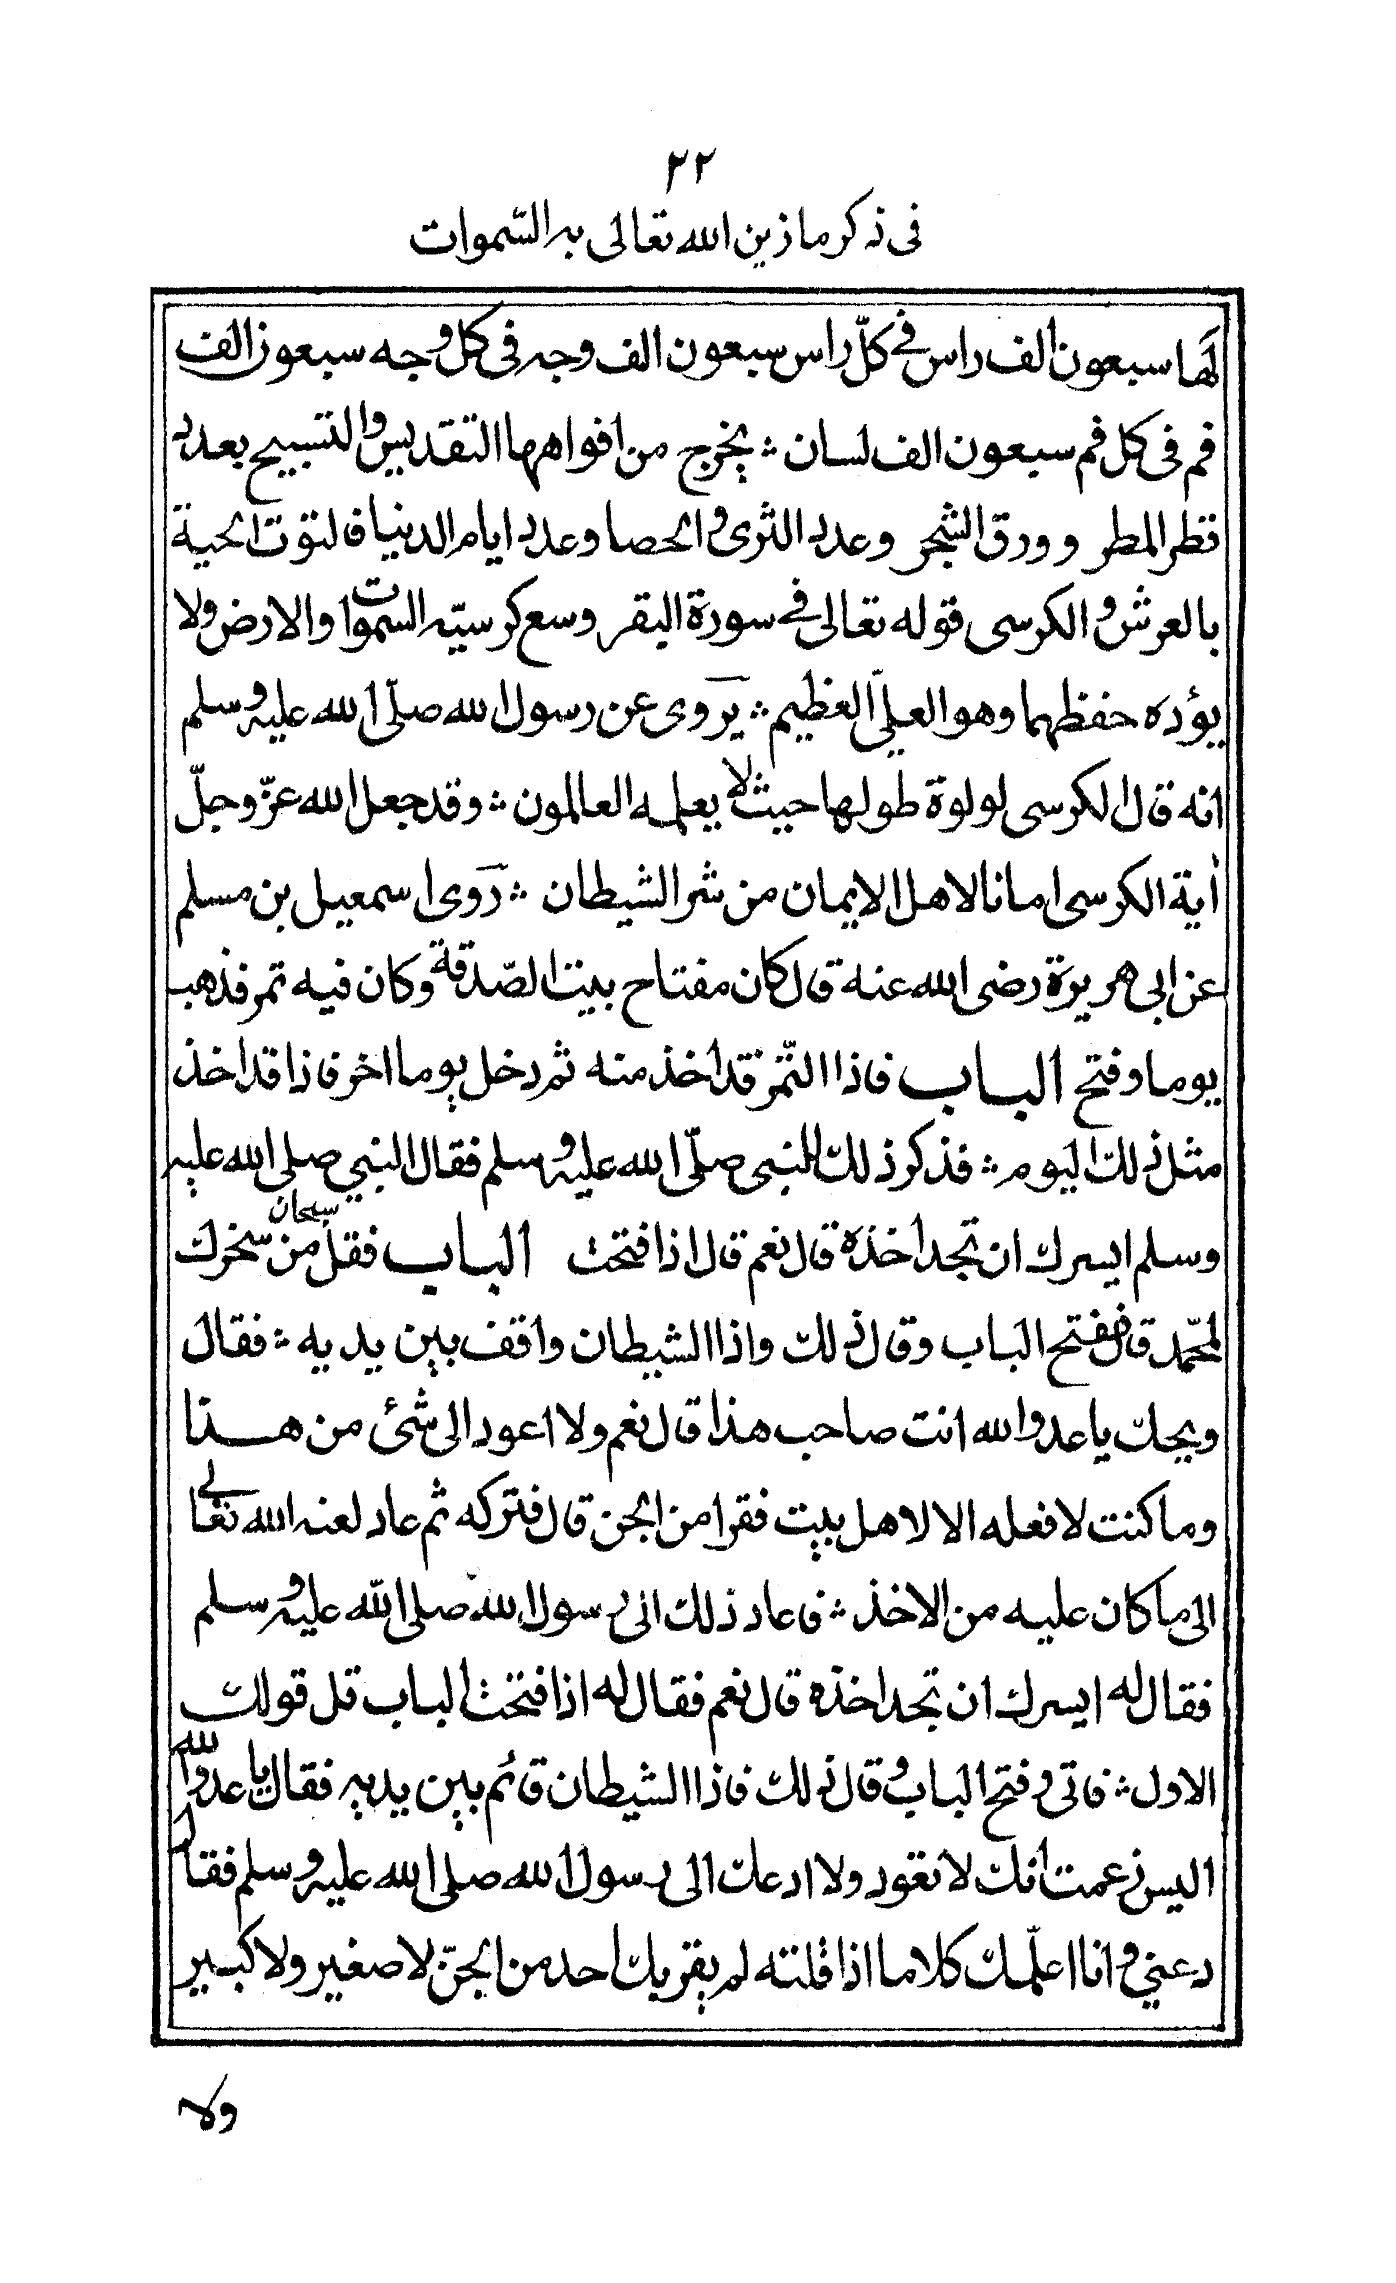 ٢٢
في ذكر ما زين الله تعالى به السّموات
لها سبعون الف راس في كلّ راس سبعون الف وجه في كل وجه سبعون الف
فم في كل فم سبعون الف لسان ؞ يخرج من افواهها التقديس والتسبيح بعدد
قطر المطر وورق الشجر وعدد الثرى والحصا وعدد ايام الدنيا فالتوت الحية
بالعرش والكرسى قوله تعالى في سورة البقر وسع كرسيّه السموات والارض ولا
يؤده حفظهما وهو العليّ العظيم ؞ يروى عن رسول الله صلّى الله عليه وسلم
انه قال الكرسى لولوة طولها حيث لا يعلمه العالمون ؞ وقد جعل الله عزّ وجلّ
أية الكرسى امانا لاهل الايمان من شر الشيطان ؞ روى اسمعيل بن مسلم
عن ابى هريرة رضى الله عنه قال كان مفتاح بيت الصّدقة وكان فيه تمر فذهب
يوما وفتح الباب فاذا التّمر قد اخذ منه ثم دخل يوما اخر فاذا قد اخذ
مثل ذلك اليوم ؞ فذكر ذلك للنبى صلّى الله عليه وسلم فقال النبي صلى الله عليه
وسلم ايسرك ان تجد اخذه قال نعم قال اذا فتحت الباب فقل سبحان من سخرك
لمحمّد قال ففتح الباب وقال ذلك واذا الشيطان واقف بين يديه ؞ فقال
ويحك يا عدو الله انت صاحب هذا قال نعم ولا اعود الى شئ من هذا
وما كنت لافعله الا لاهل بيت فقرا من الجن قال فتركه ثم عاد لعنه الله تعالى
الى ما كان عليه من الاخذ ؞ فاعاد ذلك الى رسول الله صلى الله عليه وسلم
فقال له ايسرك ان تجد اخذه قال نعم فقال له اذا فتحت الباب قل قولك
الاول ؞ فاتى وفتح الباب وقال ذلك فاذا الشيطان قائم بين يديه فقال يا عدو الله
اليس زعمت انك لا تعود ولا ادعك الى رسول الله صلى الله عليه وسلم فقال
دعني وانا اعلّمك كلاما اذا قلته لم يقربك احد من الجنّ لا صغير ولا كبير
ولا